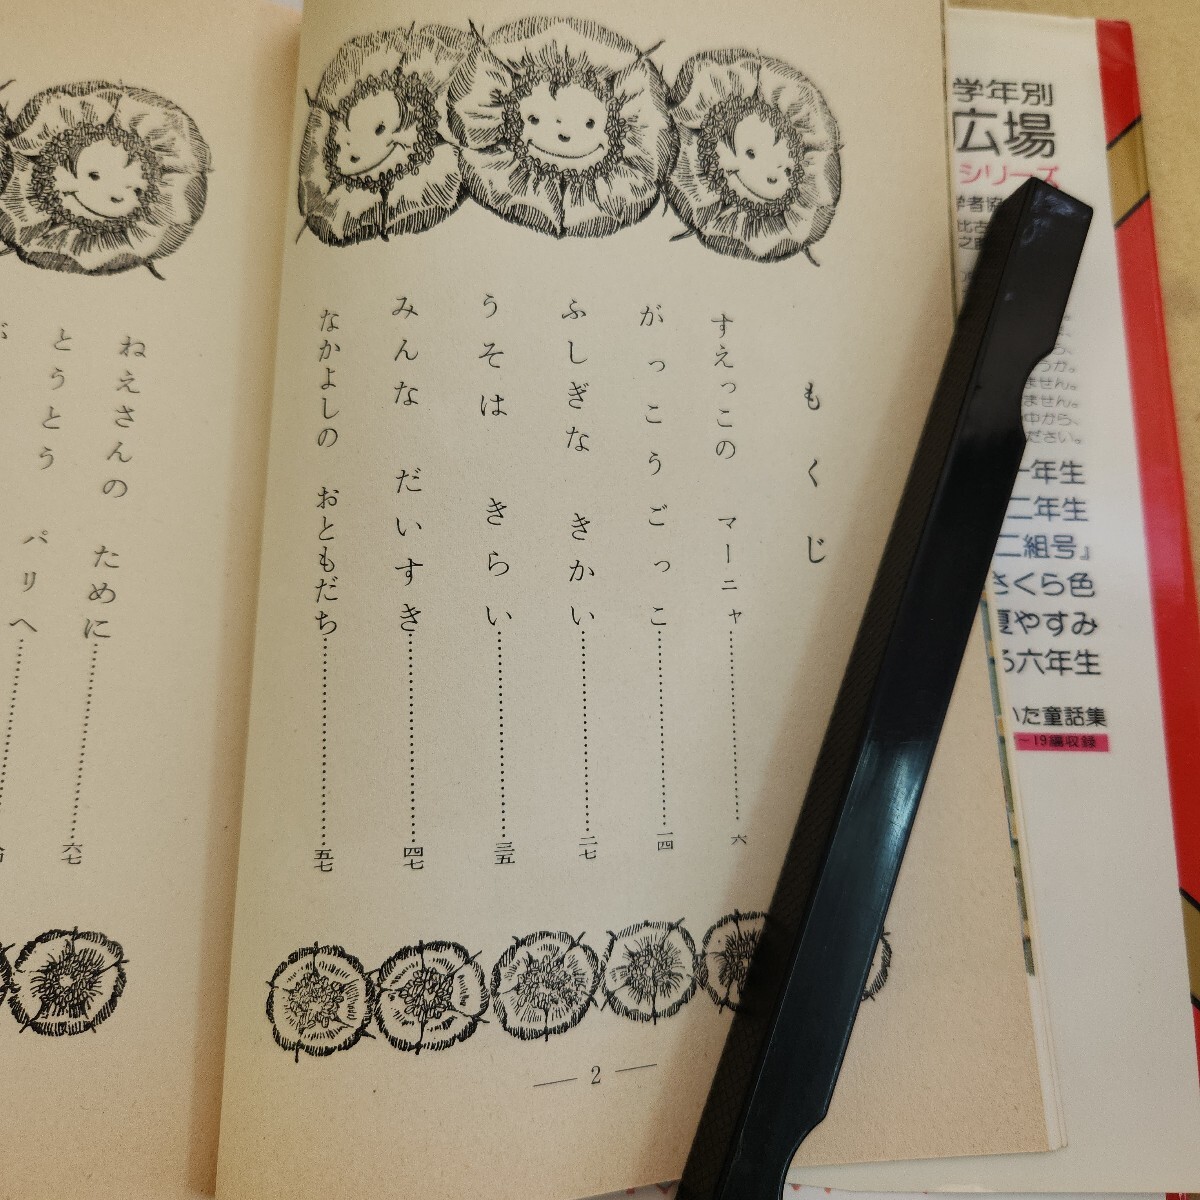 もくじ
すえっこの マーニャ……六
がっこうごっこ……一四
ふしぎな きかい……二七
うそは きらい……三五
みんな だいすき……四七
なかよしの おともだち……五七
— 2 —
ねえさんの ために……六七
とうとう パリへ……
学年別
広場
シリーズ
うか。
ません。
ません。
中から、
ださい。
一年生
二年生
二組号』
さくら色
夏やすみ
六年生
いた童話集
19編収録